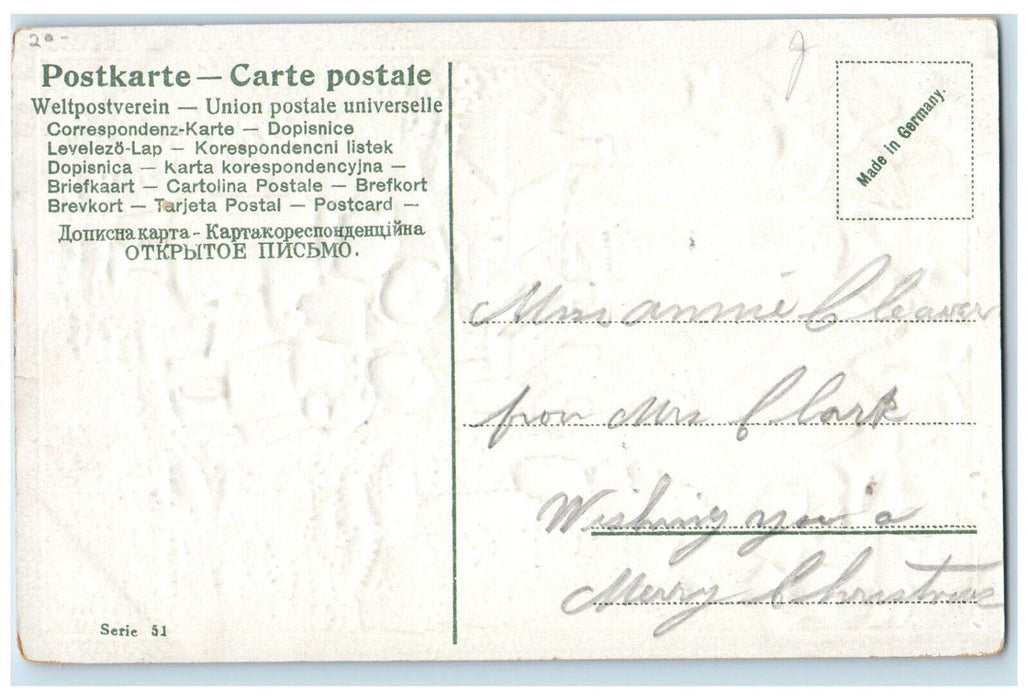 20-
Postkarte — Carte postale
Weltpostverein — Union postale universelle
Correspondenz-Karte — Dopisnice
Levelező-Lap — Korespondencni listek
Dopisnica — Karta korespondencyjna —
Briefkaart — Cartolina Postale — Brefkort
Brevkort — Tarjeta Postal — Postcard —
Дописна карта - Картакореспонденційна
ОТКРЫТОЕ ПИСЬМО.
Made in Germany.
Miss annie Cleaver
from Mrs Clark
Wishing you a
Merry Christmas
Serie 51